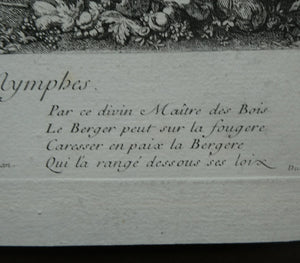 Nymphes.
Par ce divin Maître des Bois
Le Berger peut sur la fougere
Caresser en paix la Bergere
Qui la rangé dessous ses loix